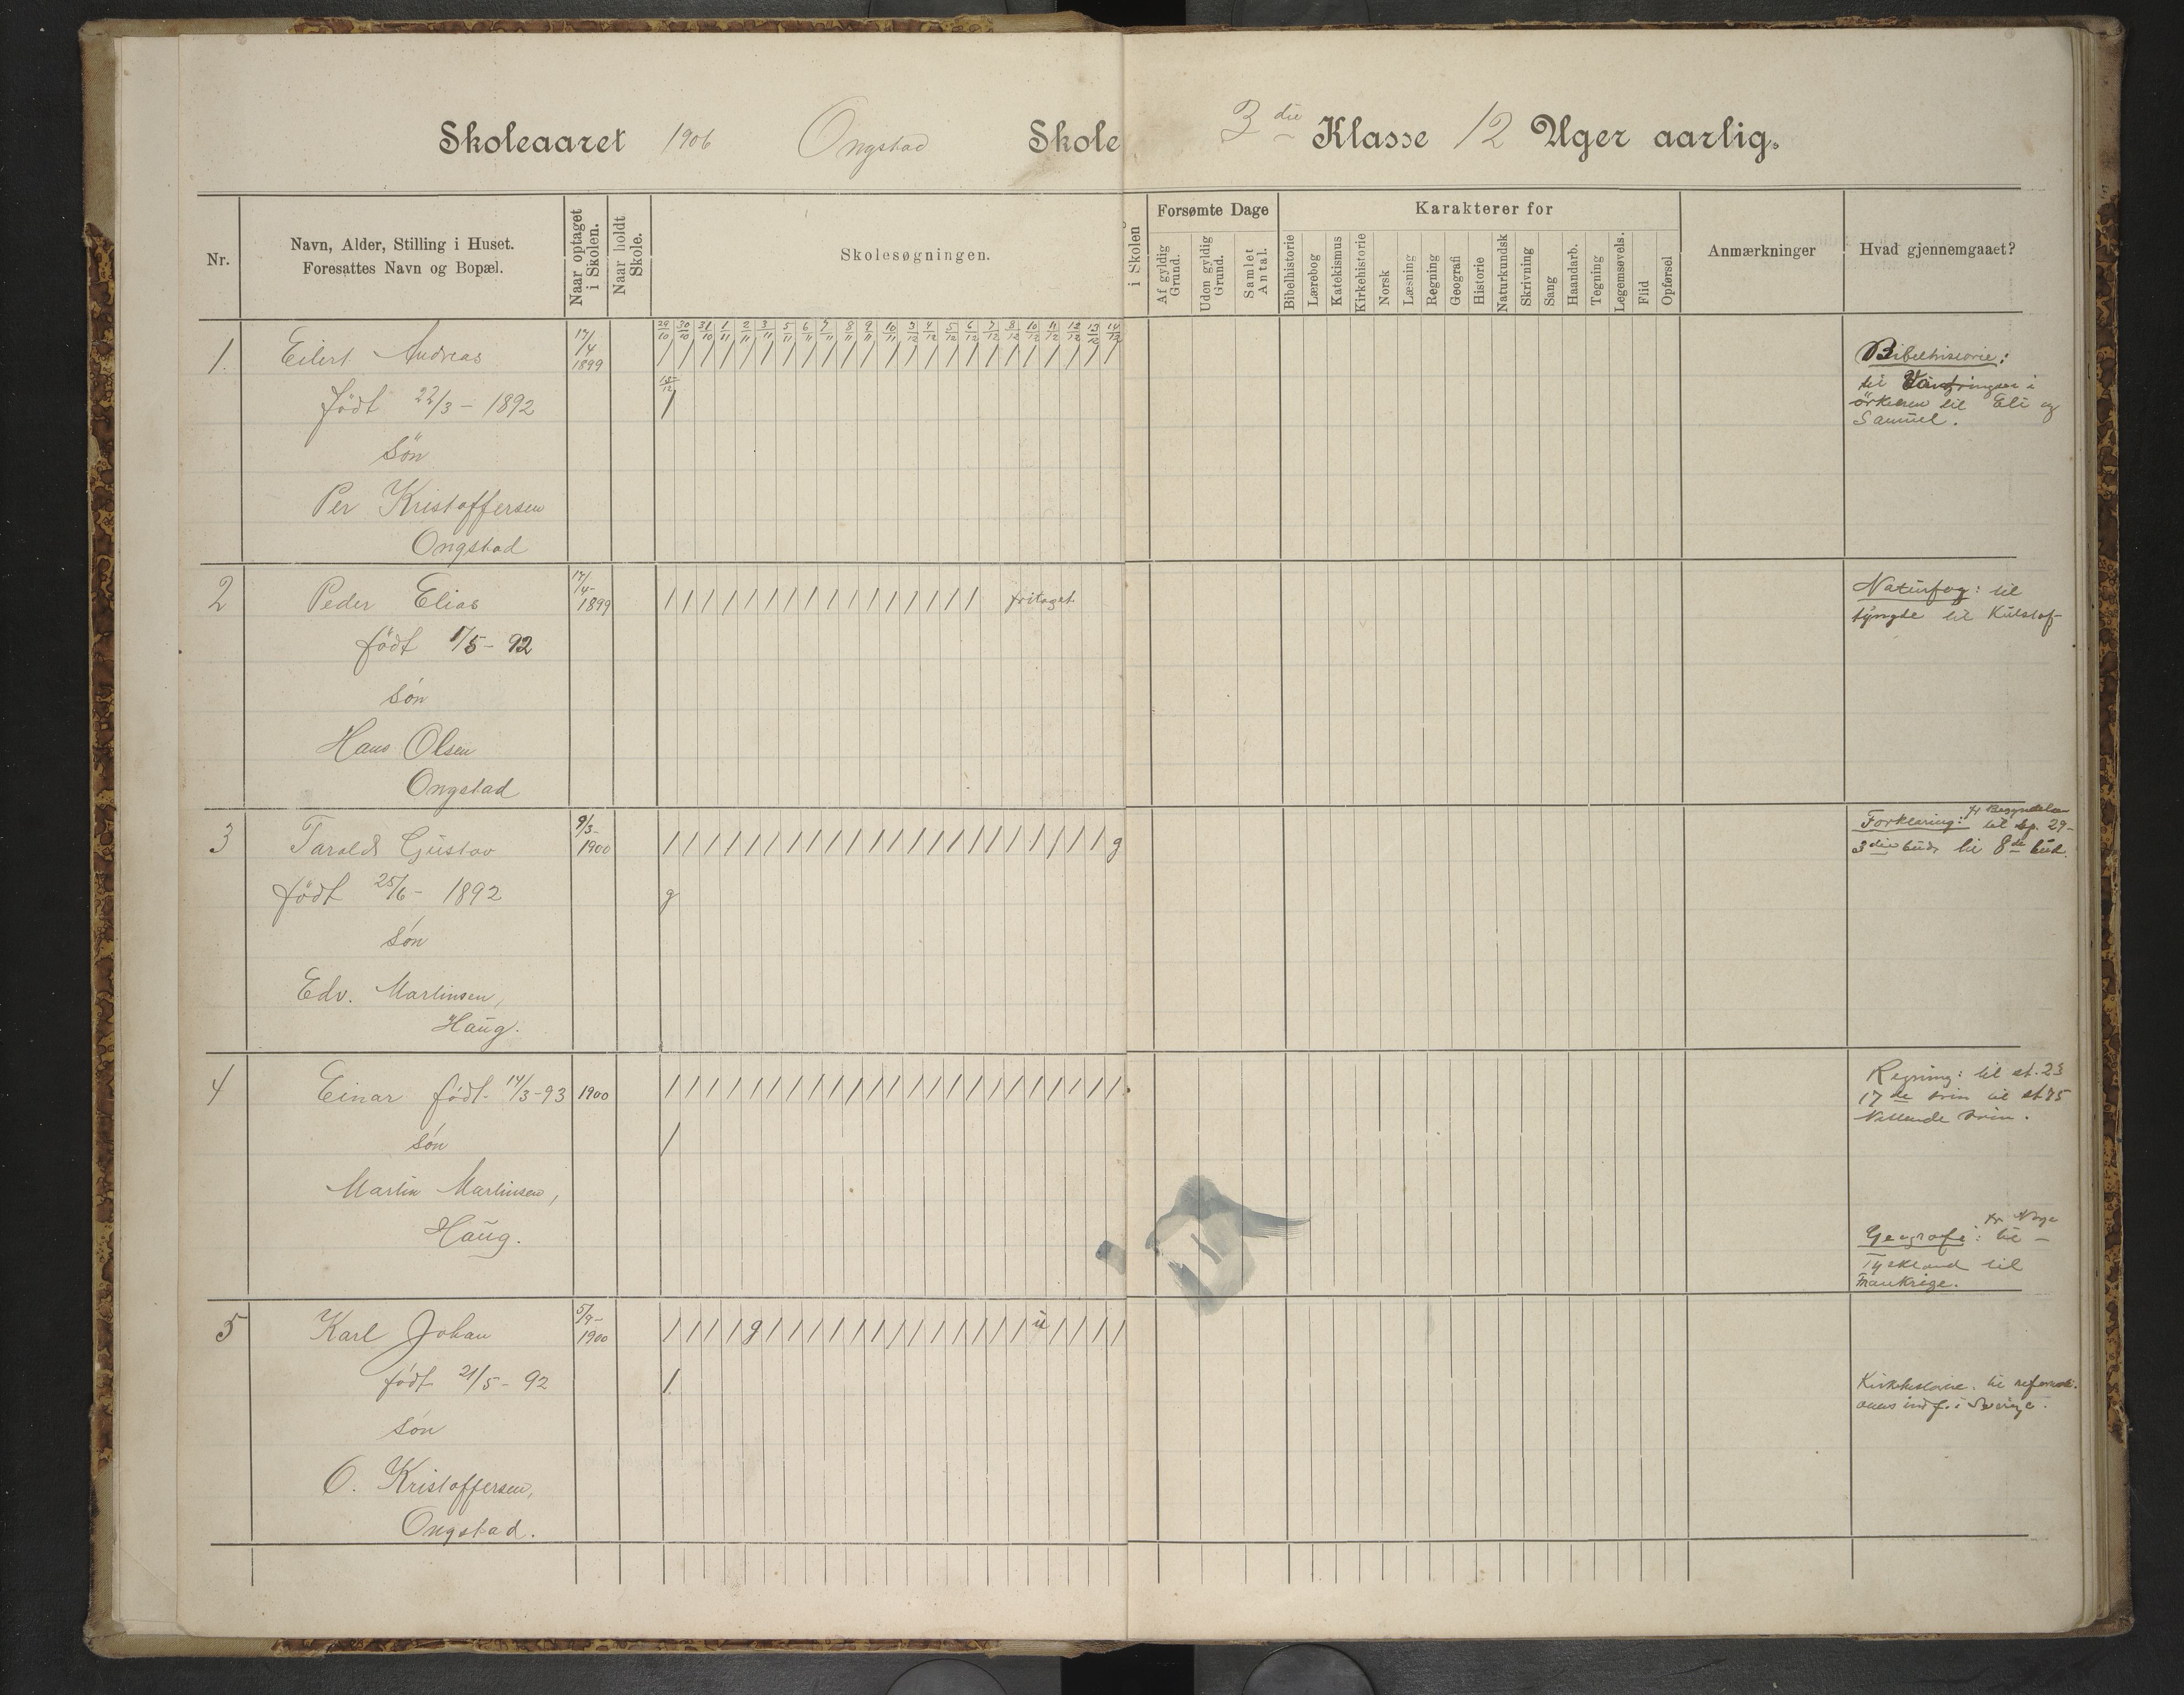 Skoleaaret 1906 Ongstad Skole 3die Klasse 12 Uger aarlig.
Nr.
Navn, Alder, Stilling i Huset.
Foresattes Navn og Bopæl.
Naar optaget i Skolen.
Naar holdt Skole.
Skolesøgningen.
i Skolen
Forsømte Dage
Af gyldig Grund.
Uden gyldig Grund.
Samlet Antal.
Karakterer for
Bibelhistorie
Lærebog
Katekismus
Kirkehistorie
Norsk
Læsning
Regning
Geografi
Historie
Naturkundsk
Skrivning
Sang
Haandarb.
Tegning
Legemsøvels.
Flid
Opførsel
Anmærkninger
Hvad gjennemgaaet?
29/10 30/10 31/10 1/11 2/11 3/11 5/11 6/11 7/11 8/11 9/11 10/11 3/12 4/12 5/12 6/12 7/12 8/12 10/12 11/12 12/12 13/12 14/12
1. Eilert Andreas 17/4 1899 / / / / / / / / / / / / / / / / / / / / / / /
15/12
født 22/3 - 1892 /
søn
Per Kristoffersen
Ongstad
Bibelhistorie:
til Vandringen i
ørkenen til Eli og
Samuel.
2 Peder Elias 17/4- 1899 / / / / / / / / / / / / / / / / fritaget
født 1/5 - 92
søn
Hans Olsen
Ongstad
Naturfag: til
tyngde til Kulstof
3 Tarald Gustav 9/3- 1900 / / / / / / / / / / / / / / / / / / / / / / g
født 25/6 - 1892 g
søn
Edv. Martinsen,
Haug.
Begyndelsen
Forklaring: til sp. 29-
3die bud til 8de bud.
4 Einar født 14/3-93 1900 / / / / / / / / / / / / / / / / / / / / / / /
søn /
Martin Martinsen,
Haug.
Regning: til st. 23
17de trin til st 75
trin.
Geografi: til -
Tyskland til
Frankrige.
5 Karl Johan 5/9- 1900 / / / / g / / / / / / / / / / / / / u / / / /
født 21/5 - 92 /
søn
O. Kristoffersen,
Ongstad.
Kirkehistorie. til reformati-
onens indf. i Sverige.